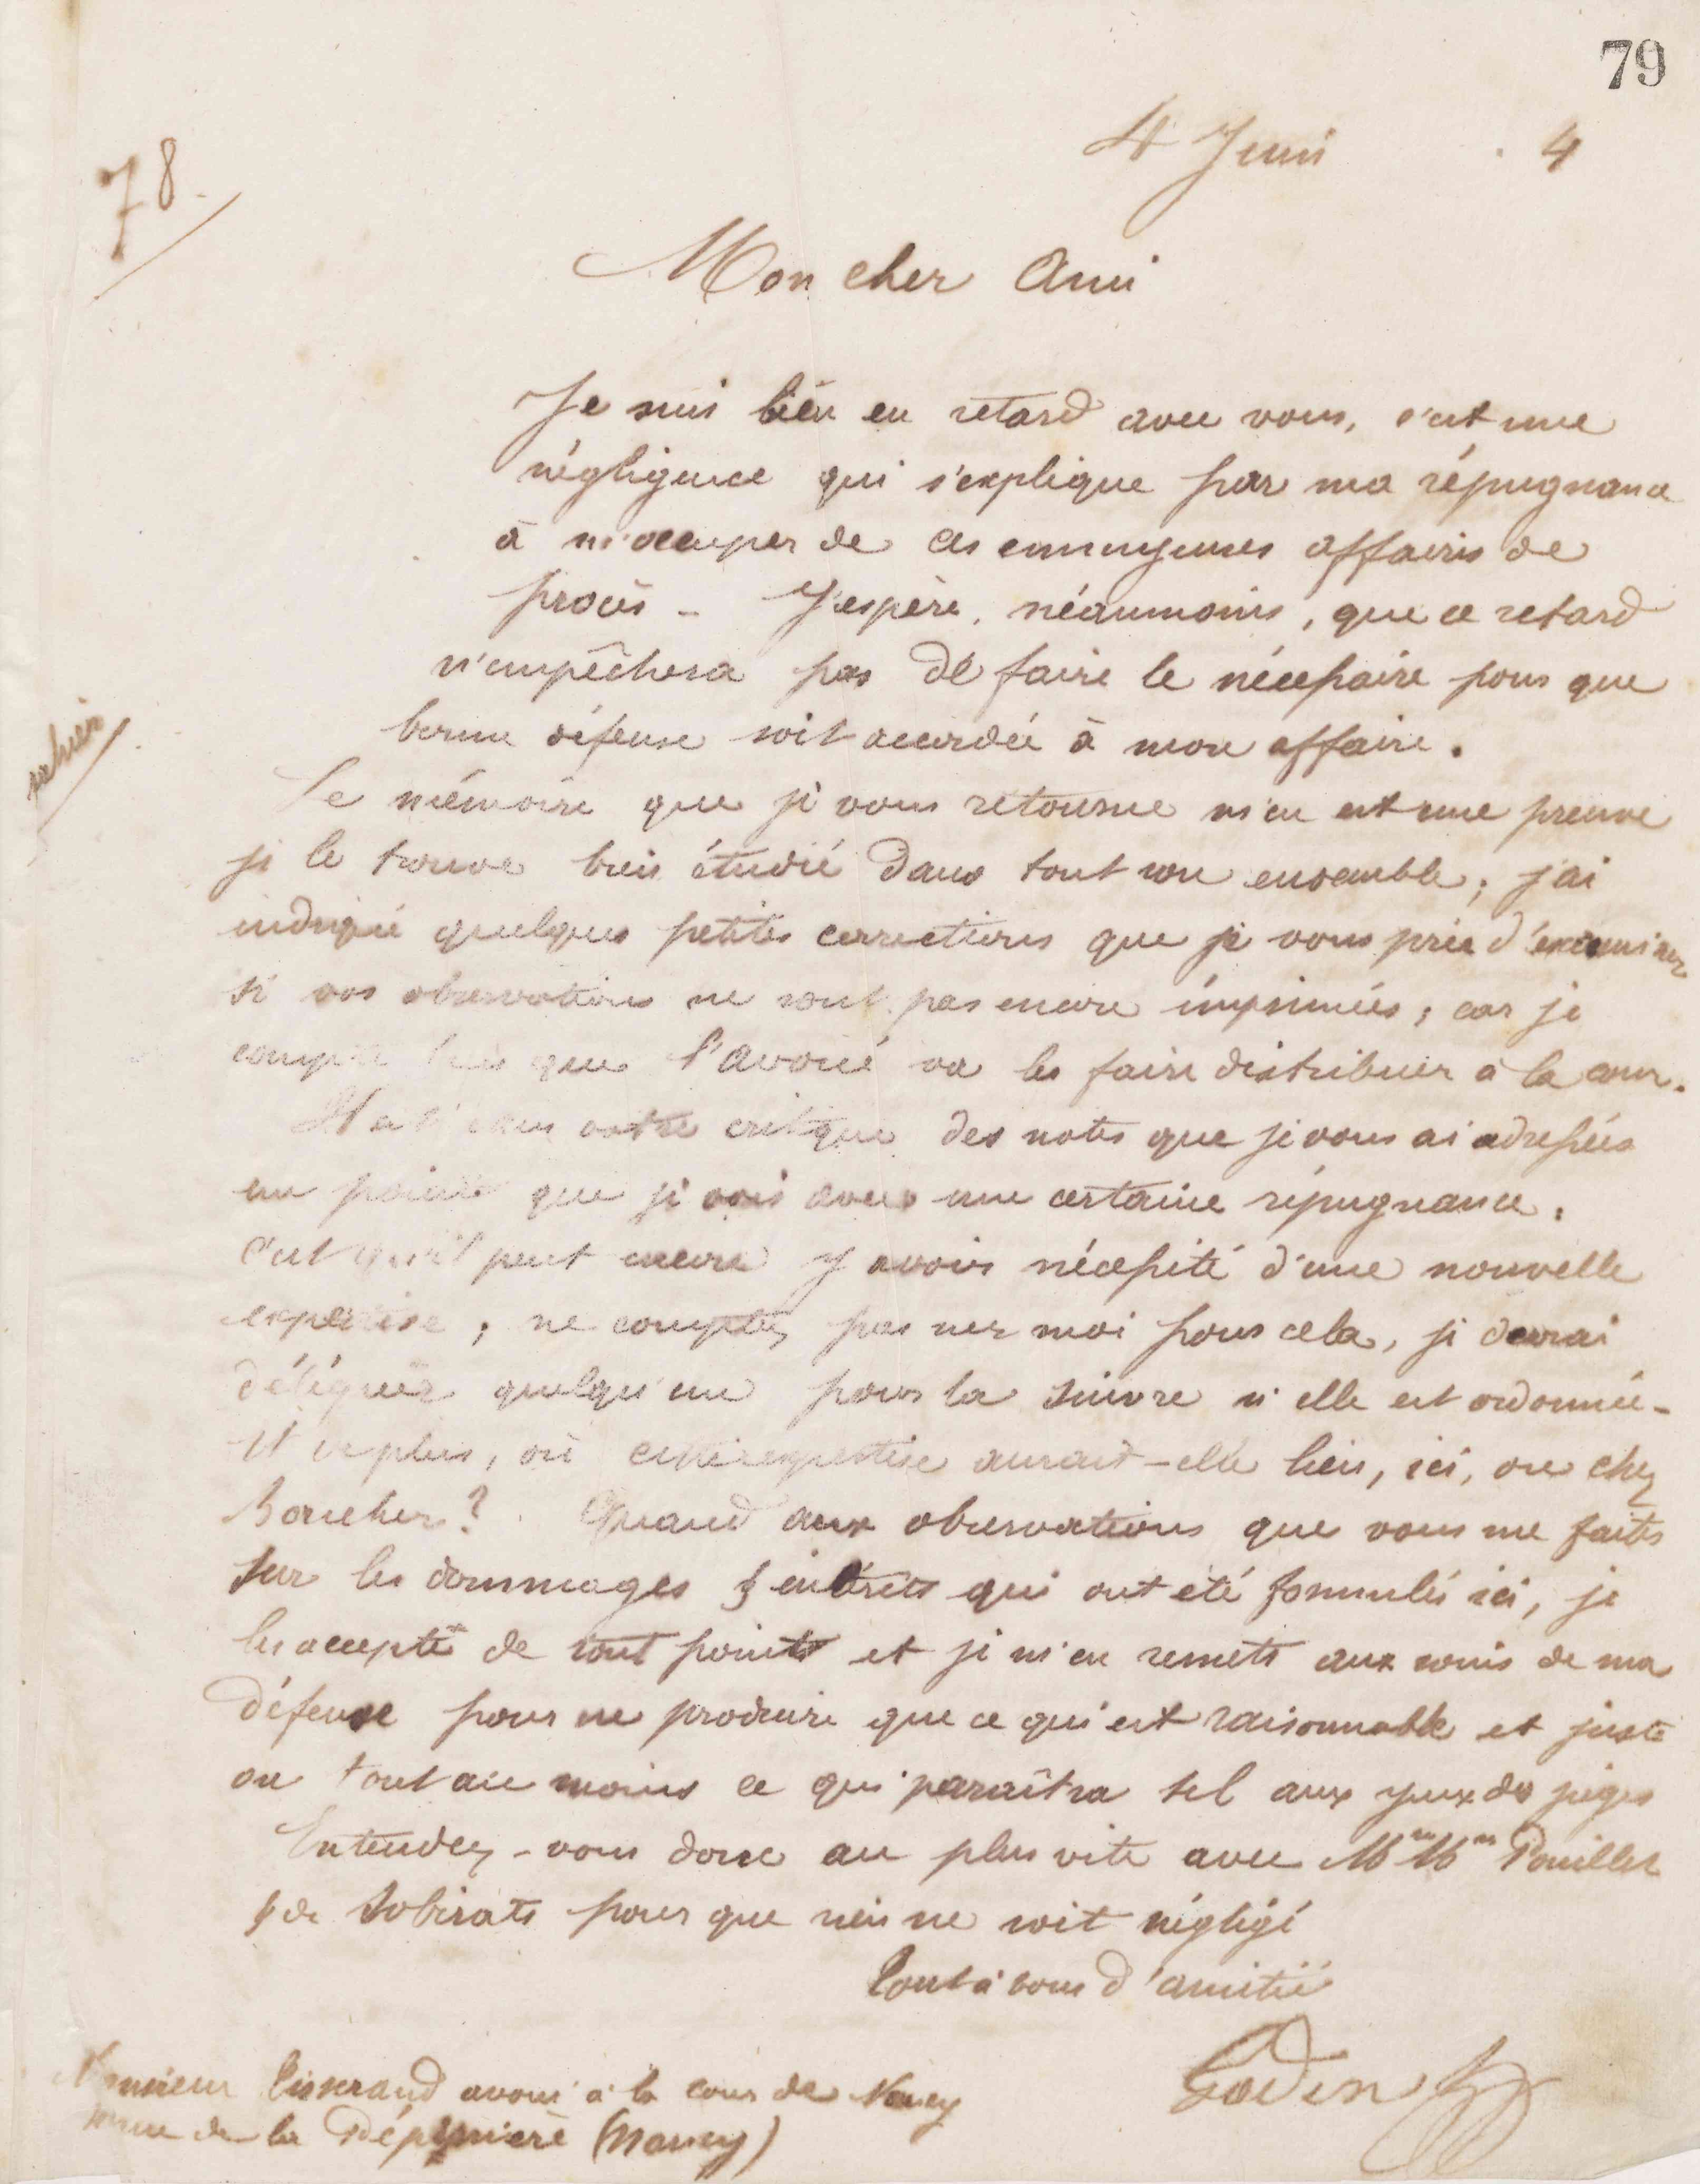 79
78.
4 Juin 4
Mon cher Ami
Je suis bien en retard avec vous, c'est une
négligence qui s'explique par ma répugnance
à m'occuper de ces ennuyeuses affaires de
procès - J'espère, néanmoins, que ce retard
n'empêchera pas de faire le nécessaire pour que
bonne défense soit accordée à mon affaire.
Le mémoire que je vous retourne m'en est une preuve
je le trouve bien étudié dans tout son ensemble; j'ai
indiqué quelques petites corrections que je vous prie d'examiner
si vos observations ne sont pas encore imprimées; car je
compte que l'avoué va les faire distribuer à la cour.
Il est dans votre critique des notes que je vous ai adressées
un point que je vois avec une certaine répugnance.
C'est qu'il peut encore y avoir nécessité d'une nouvelle
expertise; ne comptez pas sur moi pour cela, je devrai
déléguer quelqu'un pour la suivre si elle est ordonnée -
Et de plus, où cette expertise aurait-elle lieu, ici, ou chez
Boucher? Quand aux observations que vous me faites
sur les dommages & intérêts qui ont été formulés ici, je
les accepte de tout points et je m'en remets aux soins de ma
défense pour ne produire que ce qui est raisonnable et juste
ou tout au moins ce qui paraîtra tel aux yeux des juges
Entendez-vous donc au plus vite avec Mrs Mrs Pouillet
& de Sobirats pour que rien ne soit négligé
Tout à vous d'amitié
Godin
Monsieur Tisserand avoué à la cour de Nancy
rue de la Pépinière (Nancy)